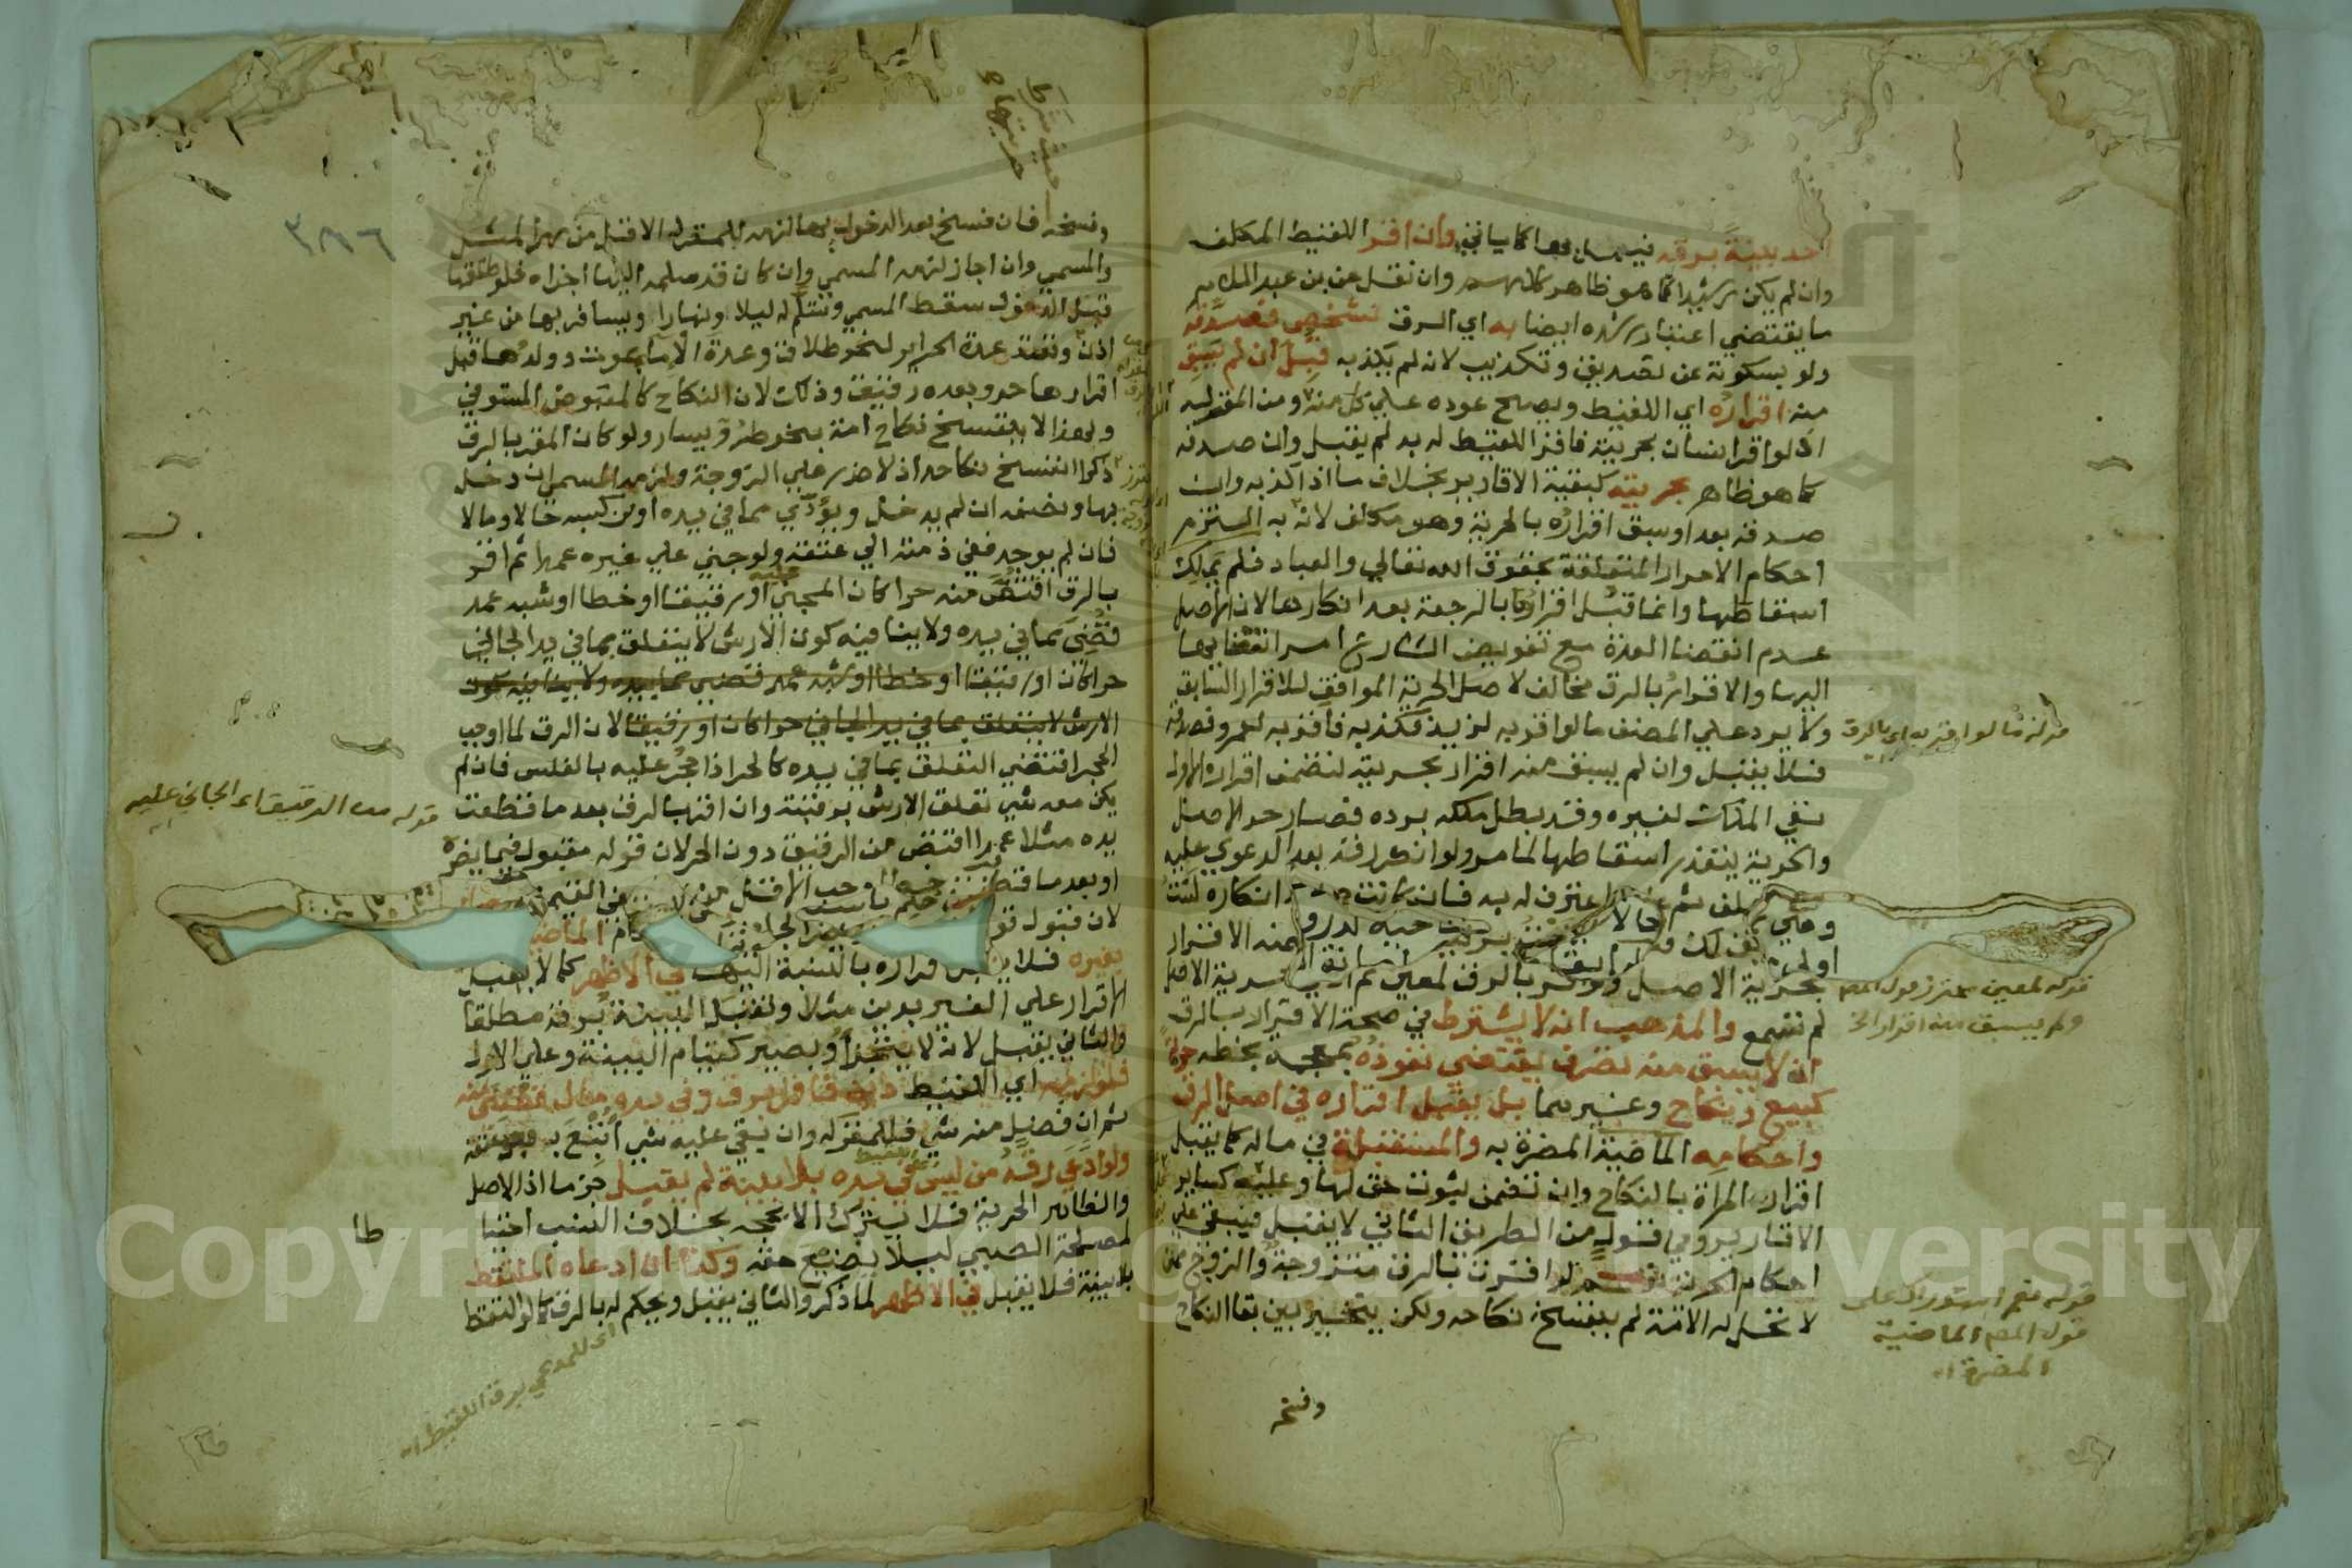 احد ببينة برقه فيعمل بها كما ياتي وان اقر اللقيط المكلف
وان لم يكن رشيدا كما هو ظاهر كلامهم وان نقل عن بن عبد السلام
ما يقتضي اعتبار رشده ايضا به اي الرق لشخص فصدقه
ولو بسكوته عن تصديق وتكذيب لانه لم يكذبه قبل ان لم يسبق
منه اقراره اي اللقيط ويصح عوده علي كل منه ومن المقر له
اذ لو اقر انسان بحريته فاقر اللقيط له به لم يقبل وان صدقه
كما هو ظاهر بحريته كبقية الاقارير بخلاف ما اذا كذبه وان
صدقه بعد او سبق اقراره بالحرية وهو مكلف لانه به التزم
احكام الاحرار المتعلقة بحقوق الله تعالي والعباد فلم يملك
اسقاطها وانما قبل اقرارها بالرجعة بعد انكارها لان الاصل
عدم انقضا العدة مع تفويض الشارع امر انقضايها
اليها والاقرار بالرق مخالف لاصل الحرية الموافق للاقرار السابق
ولا يرد علي المصنف ما لو اقر به لزيد فكذبه فاقر به لعمرو فصدقه
فلا يقبل وان لم يسبق منه اقرار بحريته لتضمن اقراره الاول
نفي الملك لغيره وقد بطل ملكه برده فصار حر الاصل
والحرية يتعذر اسقاطها لما مر ولو انكر رقه بعد الدعوي عليه
اعترف له به فان كانت
بحرية الاصل ولو اقر بالرق لمعين ثم
لم تسمع والمذهب انه لا يشترط في صحة الاقرار بالرق
ان لا يسبق منه تصرف يقتضي نفوذه بخطه حرية
كبيع ونكاح وغيرهما بل يقبل اقراره في اصل الرق
واحكامه الماضية المضرة به والمستقبلة في ماله كما يقبل
اقرار المراة بالنكاح وان تضمن ثبوت حق لها وعليه كساير
الاقارير وفي قول من الطريق الثاني لا يقبل فيبقي علي
احكام الحرية نعم لو اقرت بالرق متزوجة والزوج ممن
لا تحل له الامة لم ينفسخ نكاحه ولكن يتخير بين بقا النكاح
وفسخه
قوله ما لو اقر به اي بالرق
قوله لمعين محترز قول المص
ولم يسبق منه اقرار الخ
قوله نعم استدراك علي
قول المص الماضية
المضرة اه
٣٨٦
حيث شرط
حريتها
وفسخه فان فسخ بعد الدخول بها لزمه للمقر له الاقل من مهر المثل
والمسمي وان اجاز لزمه المسمي وان كان قد سلمه اليها اجزاه فلو طلقها
قبل الدخول سقط المسمي وتسلم له ليلا ونهارا ويسافر بها من غير
اذن وتعتد عدة الحراير لنحو طلاق وعدة الاما لموت وولدها قبل
اقرارها حر وبعده رقيق وذلك لان النكاح كالمقبوض المستوفي
ولهذا لا ينفسخ نكاح امة بنحو طرو يسار ولو كان المقر بالرق
ذكرا انفسخ نكاحه اذ لا ضرر علي الزوجة ولزمه المسمي ان دخل
بها ونصفه ان لم يدخل ويؤدي مما في يده او من كسبه حالا ومالا
فان لم يوجد ففي ذمته الي عتقه ولو جني علي غيره عمدا ثم اقر
بالرق اقتص منه حرا كان المجني عليه او رقيقا او خطا او شبه عمد
قضي مما في يده ولا ينافيه كون الارش لا يتعلق بما في يد الجاني
حرا كان او رقيقا او خطا او شبه عمد قضي مما بيده ولا ينافيه كون
الارش لا يتعلق بما في يد الجاني حرا كان او رقيقا لان الرق لما اوجب
الحجر اقتضي التعلق بما في يده كالحر اذا حجر عليه بالفلس فان لم
يكن معه شي تعلق الارش برقبته وان اقر بالرق بعد ما قطعت
يده مثلا عمدا اقتص من الرقيق دون الحر لان قوله مقبول فيما يضره
لان قبول
بغيره فلا يقبل اقراره بالنسبة اليها في الاظهر كما لا يقبل
الاقرار علي الغير بدين مثلا وتقبل البينة برقه مطلقا
والثاني يقبل لانه لا يتجزا ويصير كقيام البينة وعلي الاول
فلو لزمه اي اللقيط دين فاقر برق وفي يده مال قضي منه
ثم ان فضل منه شي فللمقر له وان بقي عليه شي اتبع به بعد عتقه
ولو ادعي رقه من ليس في يده بلا بينة لم يقبل جزما اذ الاصل
والظاهر الحرية فلا يترك الا بحجة بخلاف النسب احتيا
لمصلحة الصبي ليلا يضيع حقه وكذا ان ادعاه الملتقط
بلا بينة فلا يقبل في الاظهر لما ذكر والثاني يقبل ويحكم له بالرق كما لو التقط
طا
قوله من الرقيق اي الجاني عليه
اي للمدعي برق اللقيط اه
Copyright © King Saud University